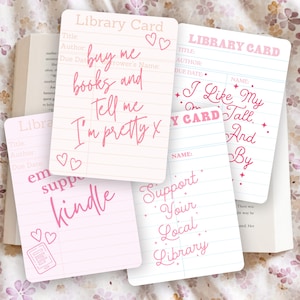 Library Card
Title
Author
Due Date
buy me
books and
tell me
I'm pretty X
LIBRARY CARD
TITLE:
AUTHOR:
DUE DATE:
NAME:
I Like My
Tall
And
By
emo
supp
kindle
CARD
NAME:
Support
Your
Local
Library